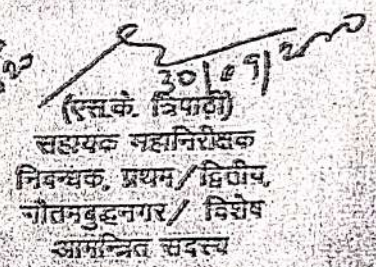 30/09/2000
(एस.के. त्रिपाठी)
सहायक महानिरीक्षक
निबन्धक, प्रथम/द्वितीय,
गौतमबुद्धनगर/ विशेष
आमन्त्रित सदस्य